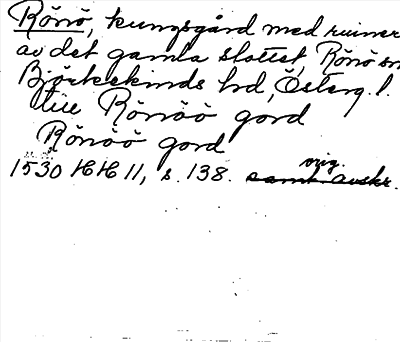 Rönö, kungsgård med ruiner
av det gamla slottet, Rönö sn
Björkekinds hd, Österg. l.
till Rönöö gord
Rönöö gord
orig.
1530 HH 11, s. 138. samt avskr.